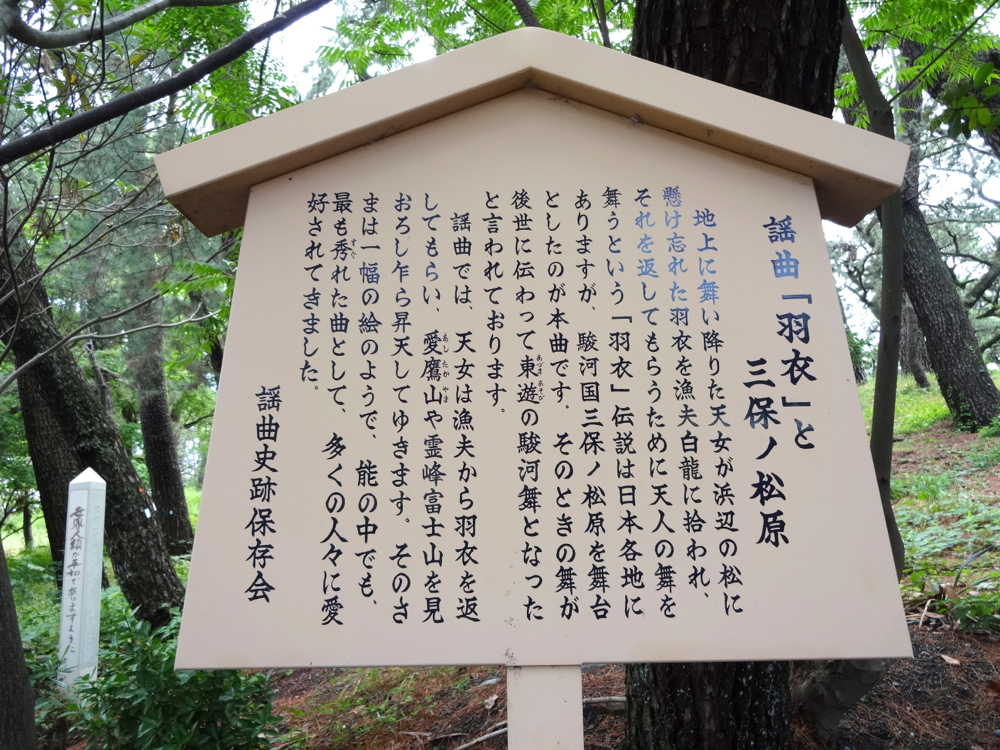 謡曲「羽衣」と
三保ノ松原
地上に舞い降りた天女が浜辺の松に
懸け忘れた羽衣を漁夫白龍に拾われ、
それを返してもらうために天人の舞を
舞うという「羽衣」伝説は日本各地に
ありますが、駿河国三保ノ松原を舞台
としたのが本曲です。そのときの舞が
後世に伝わって東遊の駿河舞となった
あづま あそび
と言われております。
謡曲では、天女は漁夫から羽衣を返
してもらい、愛鷹山や霊峰富士山を見
あしたか やま
おろし乍ら昇天してゆきます。そのさ
まは一幅の絵のようで、能の中でも、
最も秀れた曲として、多くの人々に愛
すぐ
好されてきました。
謡曲史跡保存会
世界人類が平和でありますように